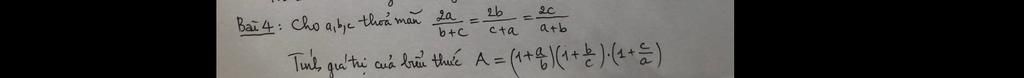 Bài 4: Cho a,b,c thoả mãn 2a/b+c = 2b/c+a = 2c/a+b
Tính giá trị của biểu thức A = (1+a/b)(1+b/c).(1+c/a)